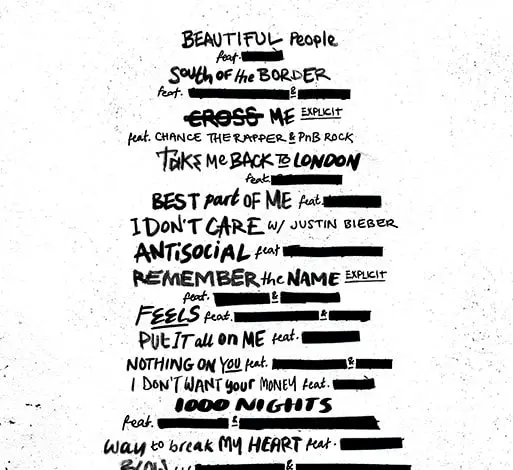 BEAUTIFUL People
feat.
South OF the BORDER
feat. &
CROSS ME EXPLICIT
feat. CHANCE THE RAPPER & PnB ROCK
TAKE Me BACK TO LONDON
feat.
BEST part OF ME feat.
I DON'T CARE W/ JUSTIN BIEBER
ANTiSOCiAL feat
REMEMBER the NAME EXPLICIT
feat. &
FEELS feat. &
PUT IT all on ME feat.
NOTHING ON YOU feat. &
I DON'T WANT your MONEY feat.
1000 NIGHTS
feat. &
Way to break MY HEART feat.
BLOW